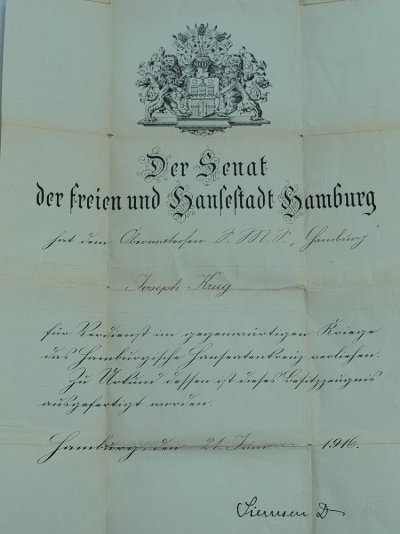 Der Senat
der freien und Hansestadt Hamburg
hat dem Obermatrosen S. M. S. „Hamburg“
Joseph Krug
für Verdienst im gegenwärtigen Kriege
das Hamburgische Hanseatenkreuz verliehen.
Zu Urkund dessen ist dieses Besitzzeugnis
ausgefertigt worden.
Hamburg, den 21. 1916.
Siemsen D